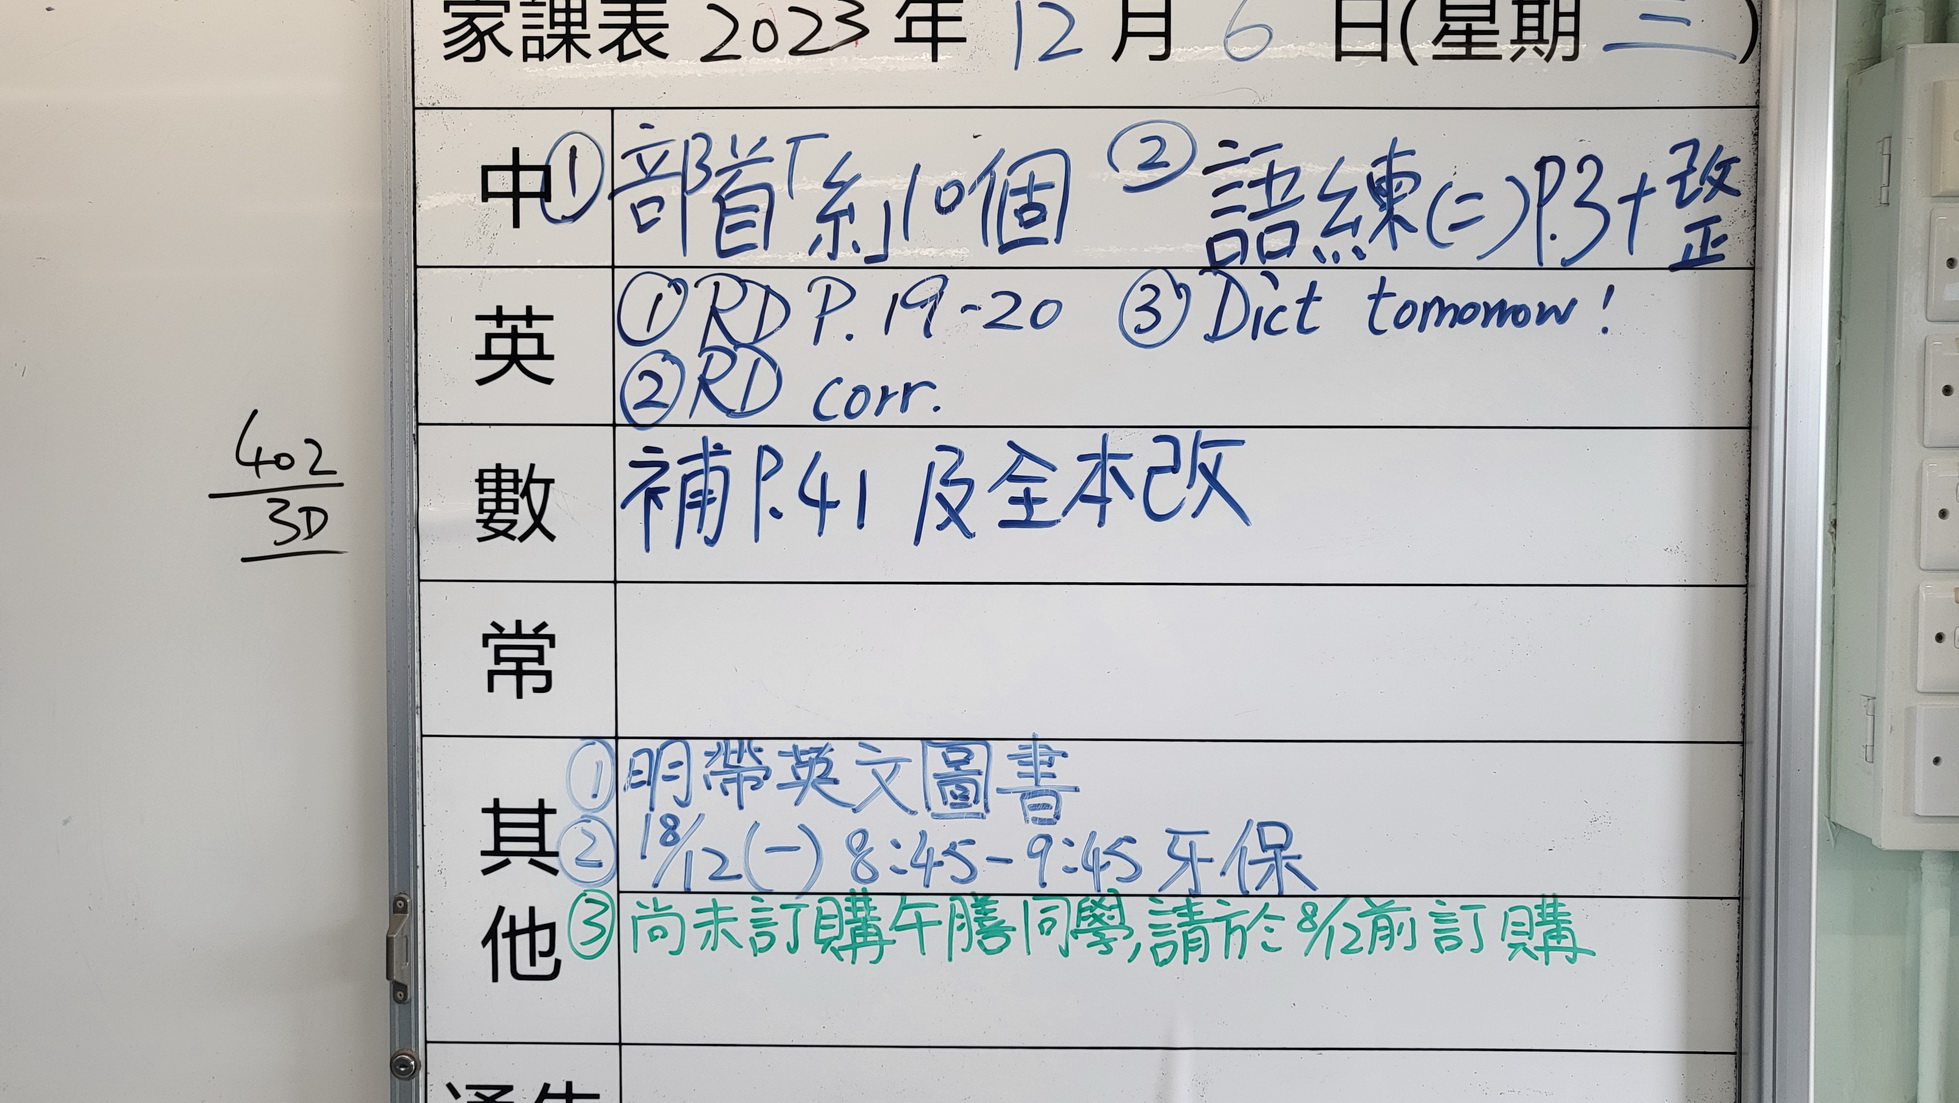 家課表 2023 年 12 月 6 日(星期 三)
中 ①部首「糸」10個 ②語練(二)P.3+改正
英 ①RD P.19-20 ③Dict tomorrow!
②RD corr.
402
3D
數 補P.41 及全本改
常
其他 ①明帶英文圖書
②18/12(一) 8:45-9:45 牙保
③尚未訂購午膳同學,請於8/12前訂購
通告